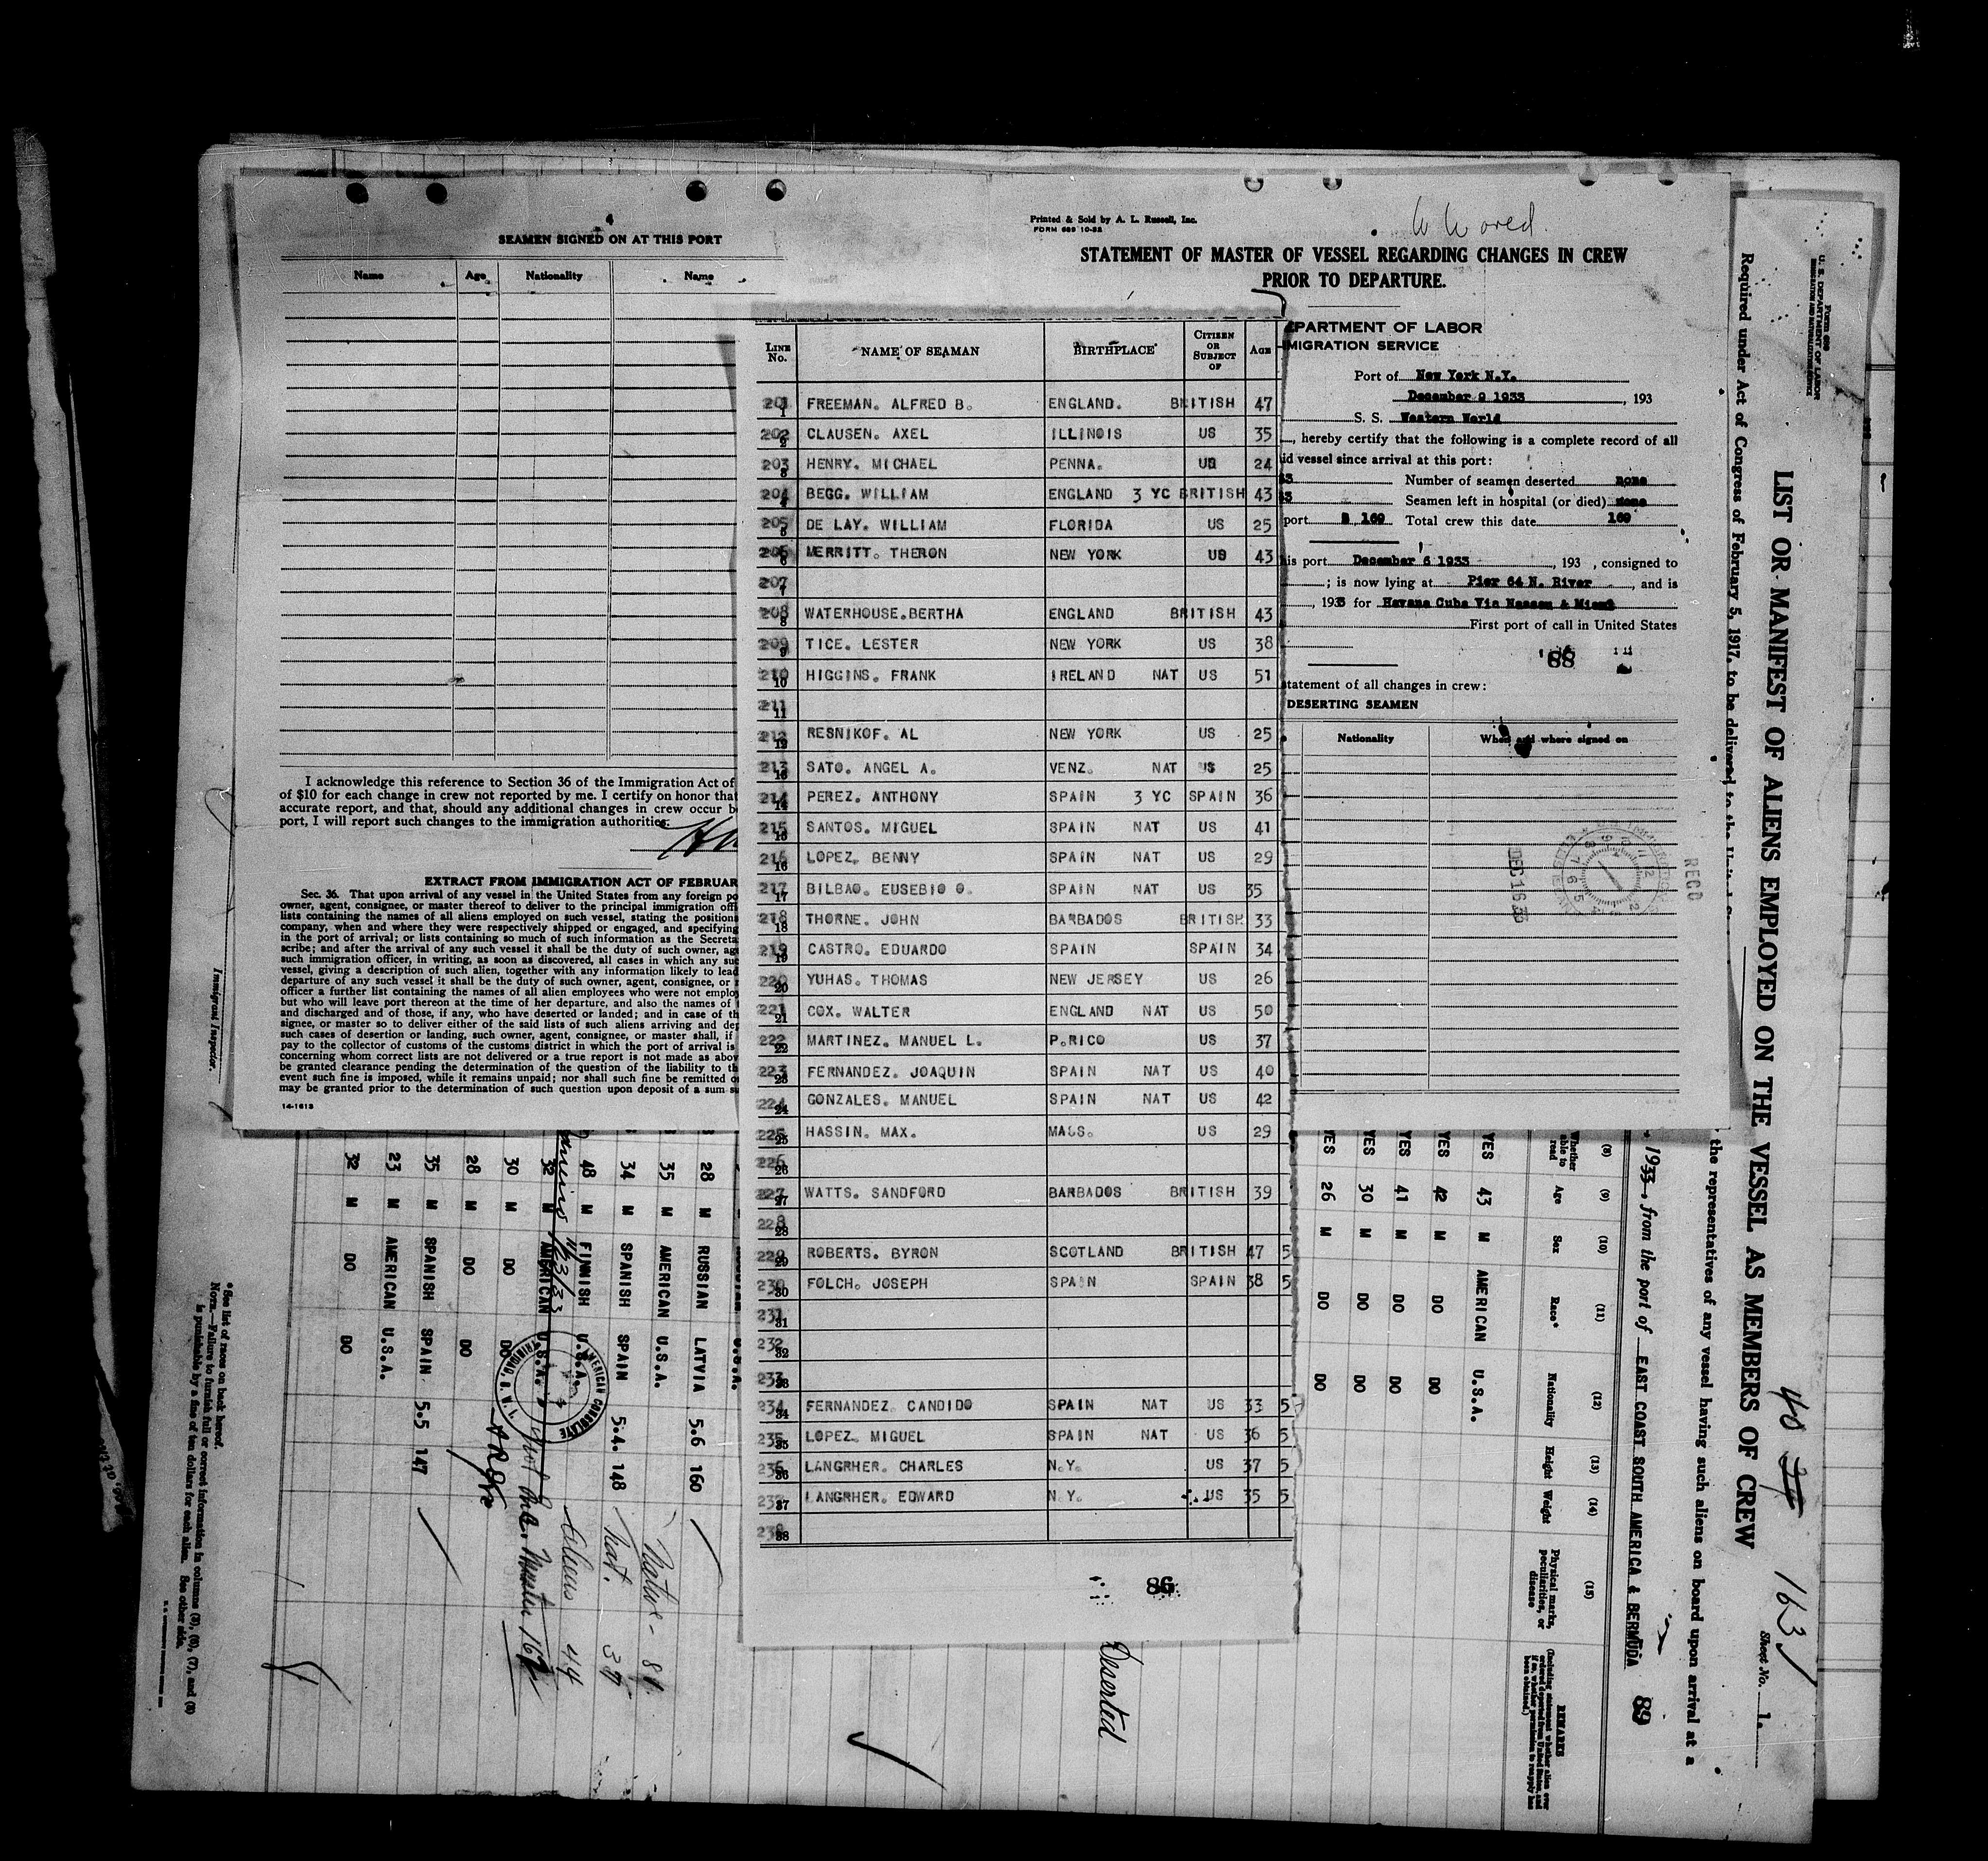 4
SEAMEN SIGNED ON AT THIS PORT
Name Age Nationality Name
I acknowledge this reference to Section 36 of the Immigration Act of
of $10 for each change in crew not reported by me. I certify on honor that
accurate report, and that, should any additional changes in crew occur b
port, I will report such changes to the immigration authorities.
EXTRACT FROM IMMIGRATION ACT OF FEBRUAR
Sec. 36. That upon arrival of any vessel in the United States from any foreign po
owner, agent, consignee, or master thereof to deliver to the principal immigration off
lists containing the names of all aliens employed on such vessel, stating the position
company, when and where they were respectively shipped or engaged, and specifying
in the port of arrival; or lists containing so much of such information as the Secreta
scribe; and after the arrival of any such vessel it shall be the duty of such owner, age
such immigration officer, in writing, as soon as discovered, all cases in which any suc
vessel, giving a description of such alien, together with any information likely to lead
departure of any such vessel it shall be the duty of such owner, agent, consignee, or
officer a further list containing the names of all alien employees who were not emplo
but who will leave port thereon at the time of her departure, and also the names of
and discharged and of those, if any, who have deserted or landed; and in case of th
signee, or master so to deliver either of the said lists of such aliens arriving and dep
such cases of desertion or landing, such owner, agent, consignee, or master shall, if
pay to the collector of customs of the customs district in which the port of arrival is
concerning whom correct lists are not delivered or a true report is not made as abov
be granted clearance pending the determination of the question of the liability to th
event such fine is imposed, while it remains unpaid; nor shall such fine be remitted o
may be granted prior to the determination of such question upon deposit of a sum s
14-1613
Printed & Sold by A. L. Russell, Inc.
FORM 689 10-32
STATEMENT OF MASTER OF VESSEL REGARDING CHANGES IN CREW
PRIOR TO DEPARTURE.
PARTMENT OF LABOR
MIGRATION SERVICE
Port of New York N.Y.
December 9 1933, 193
S. S. Western World
, hereby certify that the following is a complete record of all
id vessel since arrival at this port:
Number of seamen deserted none
Seamen left in hospital (or died) none
port 169 Total crew this date 169
his port December 6 1933, 193 , consigned to
; is now lying at Pier 64 N. River, and is
, 1933 for Havana Cuba Via Nassau & Miami
First port of call in United States
88
statement of all changes in crew:
DESERTING SEAMEN
Nationality When and where signed on
DEC 16
RECD
LINE No. NAME OF SEAMAN BIRTHPLACE CITIZEN OR SUBJECT OF AGE
201 1 FREEMAN. ALFRED B. ENGLAND. BRITISH 47
202 2 CLAUSEN. AXEL ILLINOIS US 35
203 3 HENRY. MICHAEL PENNA. US 24
204 4 BEGG. WILLIAM ENGLAND 3 YC BRITISH 43
205 5 DE LAY. WILLIAM FLORIDA US 25
206 6 MERRITT. THERON NEW YORK US 43
207 7
208 8 WATERHOUSE.BERTHA ENGLAND BRITISH 43
209 9 TICE. LESTER NEW YORK US 38
210 10 HIGGINS. FRANK IRELAND NAT US 51
211 11
212 12 RESNIKOF. AL NEW YORK US 25
213 13 SATO. ANGEL A. VENZ. NAT US 25
214 14 PEREZ. ANTHONY SPAIN 3 YC SPAIN 36
215 15 SANTOS. MIGUEL SPAIN NAT US 41
216 16 LOPEZ. BENNY SPAIN NAT US 29
217 17 BILBAO. EUSEBIO O. SPAIN NAT US 35
218 18 THORNE. JOHN BARBADOS BRITISH 33
219 19 CASTRO. EDUARDO SPAIN SPAIN 34
220 20 YUHAS. THOMAS NEW JERSEY US 26
221 21 COX. WALTER ENGLAND NAT US 50
222 22 MARTINEZ. MANUEL L. P.RICO US 37
223 23 FERNANDEZ. JOAQUIN SPAIN NAT US 40
224 24 GONZALES. MANUEL SPAIN NAT US 42
225 25 HASSIN. MAX. MASS. US 29
226 26
227 27 WATTS. SANDFORD BARBADOS BRITISH 39
228 28
229 29 ROBERTS. BYRON SCOTLAND BRITISH 47 5
230 30 FOLCH. JOSEPH SPAIN SPAIN 38 5
231 31
232 32
233 33
234 34 FERNANDEZ. CANDIDO SPAIN NAT US 33 5
235 35 LOPEZ. MIGUEL SPAIN NAT US 36 5
236 36 LANGRHER. CHARLES N.Y. US 37 5
237 37 LANGRHER. EDWARD N.Y. US 35 5
238 38
86
Form 689
U. S. DEPARTMENT OF LABOR
LIST OR MANIFEST OF ALIENS EMPLOYED ON THE VESSEL AS MEMBERS OF CREW
Sheet No. 1.
Required under Act of Congress of February 5, 1917, to be delivered to the
the representatives of any vessel having such aliens on board upon arrival at a
1933, from the port of EAST COAST SOUTH AMERICA & BERMUDA 89
(8) (9) (10) (11) (12) (13) (14) (15)
Whether able to read Age Sex Race* Nationality Height Weight Physical marks, peculiarities, or disease REMARKS
YES 43 M AMERICAN U.S.A.
YES 42 M DO DO
YES 41 M DO DO
YES 30 M DO DO
YES 26 M DO DO
Deserted
28 M RUSSIAN LATVIA 5.6 160
35 M AMERICAN U.S.A.
34 M SPANISH SPAIN 5.4. 148
48 M FINNISH U.S.A.
32 M AMERICAN U.S.A.
30 M DO DO
28 M DO DO
35 M SPANISH SPAIN 5.5 147
23 M AMERICAN U.S.A.
32 M DO DO
AMERICAN CONSULATE
TRINIDAD, B. W. I.
Native - 81
Nat. 37
Aliens 44
*See list of races on back hereof.
NOTE.—Failure to furnish full or correct information in columns (3), (6), (7), and (8)
is punishable by a fine of ten dollars for each alien. See other side.
Immigrant Inspector.